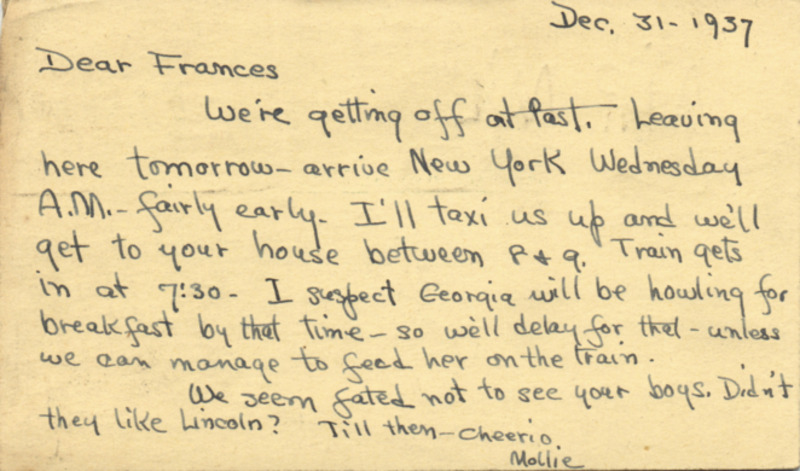 Dec. 31 - 1937
Dear Frances
We're getting off at last. Leaving
here tomorrow - arrive New York Wednesday
A.M. - fairly early. I'll taxi us up and we'll
get to your house between 8 & 9. Train gets
in at 7:30 - I suspect Georgia will be howling for
breakfast by that time - so we'll delay for that - unless
we can manage to feed her on the train.
We seem fated not to see your boys. Didn't
they like Lincoln? Till then - cheerio.
Mollie